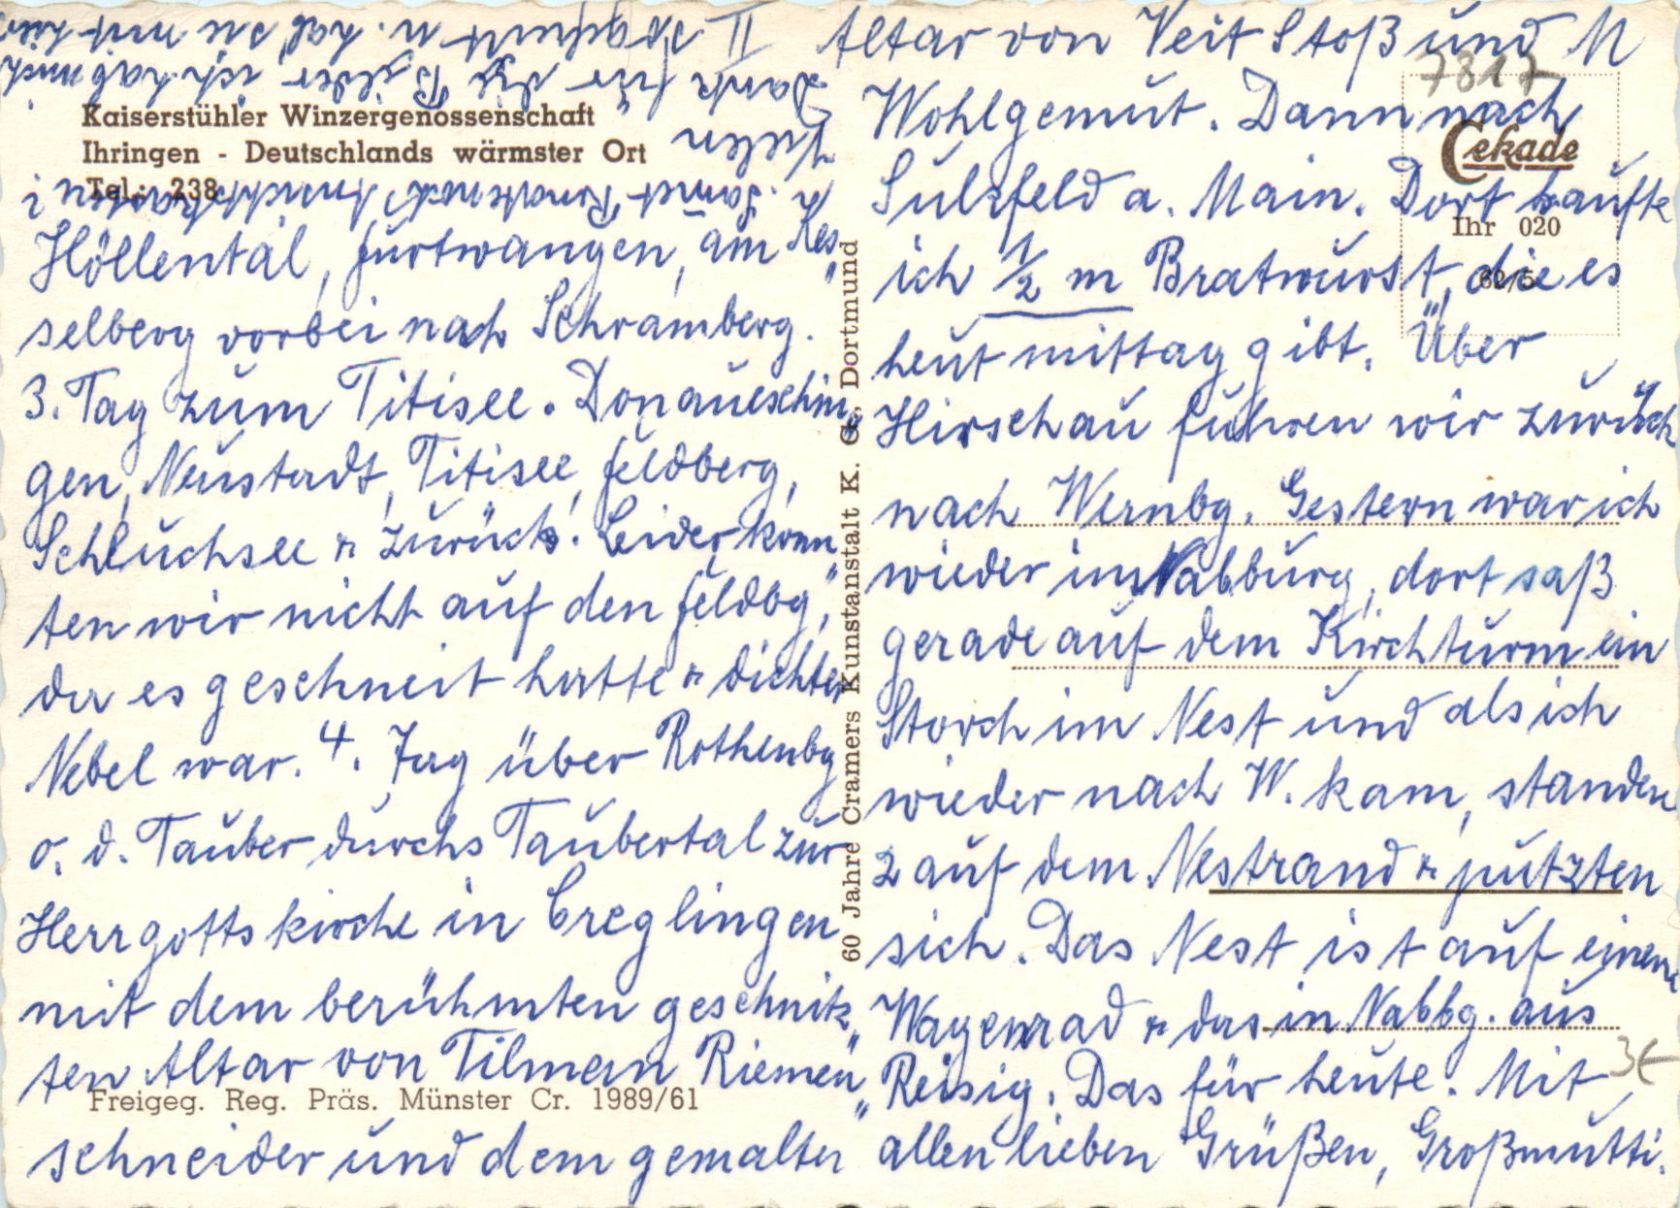 II
Dank für die Bilder ich hab mich
Kaiserstühler Winzergenossenschaft
Ihringen - Deutschlands wärmster Ort
Tel.: 238
Höllental, Furtwangen, am Kes„
selberg vorbei nach Schramberg.
3. Tag zum Titisee. Donaueschin„
gen, Neustadt, Titisee, Feldberg,
Schluchsee u zurück. Leider konn„
ten wir nicht auf den Feldbg,
da es geschneit hatte u dichter
Nebel war. 4. Tag über Rothenbg
o. d. Tauber durchs Taubertal zur
Herrgottskirche in Creglingen
mit dem berühmten geschnitz„
ten Altar von Tilman Riemen„
Freigeg. Reg. Präs. Münster Cr. 1989/61
schneider und dem gemalten
60 Jahre Cramers Kunstanstalt K. G., Dortmund
Altar von Veit Stoß und M
7817
Wohlgemut. Dann nach
Cekade
Sulzfeld a. Main. Dort kaufte
Ihr 020
ich ½ m Bratwurst, die es
62/5
heut mittag gibt. Über
Hirschau fuhren wir zurück
nach Wernbg. Gestern war ich
wieder in Nabburg, dort saß
gerade auf dem Kirchturm ein
Storch im Nest und als ich
wieder nach W. kam, standen
2 auf dem Nestrand u putzten
sich. Das Nest ist auf einem
Wagenrad u das in Nabbg. aus
Reisig. Das für heute. Mit
3€
allen lieben Grüßen, Großmutti.